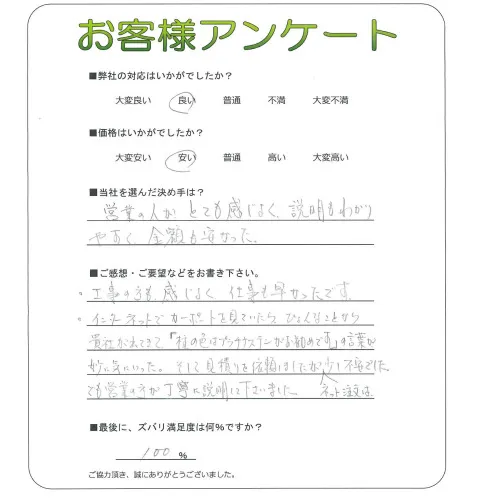 お客様アンケート
■弊社の対応はいかがでしたか？
大変良い 良い 普通 不満 大変不満
■価格はいかがでしたか？
大変安い 安い 普通 高い 大変高い
■当社を選んだ決め手は？
営業の人が とても感じよく、説明もわかり
やすく、金額も安かった。
■ご感想・ご要望などをお書き下さい。
・工事の方も、感じよく 仕事も早かったです。
・インターネットで カーポートを見ていたら、ひょんなことから
貴社がでてきて、「柱の色はプラチナステンがお勧めです」の言葉が
妙に気にいった。そして見積りを依頼しましたが少し不安でした。
でも営業の方が丁寧に説明して下さいました。 ネット注文は
■最後に、ズバリ満足度は何％ですか？
100 %
ご協力頂き、誠にありがとうございました。